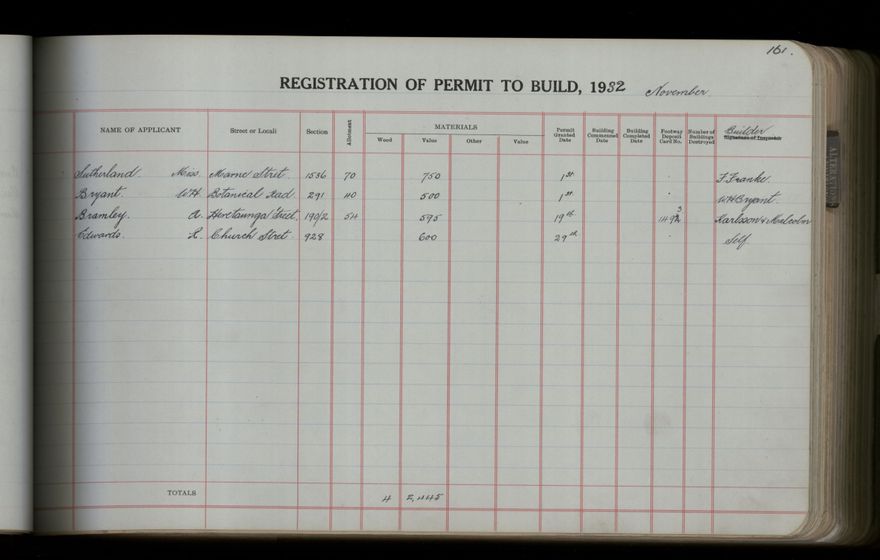 161.
REGISTRATION OF PERMIT TO BUILD, 1932 November
NAME OF APPLICANT Street or Locali Section Allotment MATERIALS Wood Value Other Value Permit Granted Date Building Commenced Date Building Completed Date Footway Deposit Card No. Number of Buildings Destroyed Builder Signature of Inspector
Sutherland Miss. Marne Street. 1536 70 750 1st F Franke
Bryant W.H. Botanical Road 291 40 500 1st W H Bryant
Bramley. A. Heretaunga Street, 190/2 54 595 19th Karlsson & Malcolm
Edwards. R. Church Street. 928 600 29th Self
TOTALS 4 2,445
ALTERATIONS